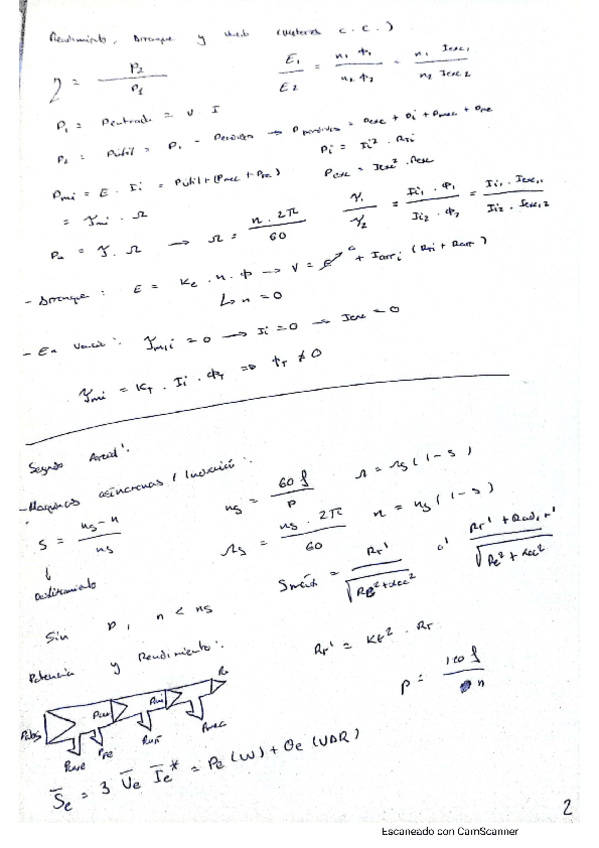 Rendimiento, Arranque y Vacío (Motores C.C.)
η = P₂ / P₁    E₁ / E₂ = n₁ φ₁ / n₂ φ₂ = n₁ Iexc₁ / n₂ Iexc₂
P₁ = Pentrada = V · I
P₂ = Pútil = P₁ - Pérdidas → Pperdidas = Pexc + Pi + Pmec + PFe
Pi = Ii² · Ri
Pmi = E · Ii = Pútil + (Pmec + PFe)    Pexc = Iexc² · Rexc
= Tmi · Ω
Pu = T · Ω → Ω = n · 2π / 60    T₁ / T₂ = Ii₁ · φ₁ / Ii₂ · φ₂ = Ii₁ · Iexc₁ / Ii₂ · Iexc₂
- Arranque: E = Ke · n · φ → V = E + Iarri (Ri + Rarr)
↳ n = 0
- En Vacío: Tm,i = 0 → Ii = 0 → Iexc = 0
Tmi = KT · Ii · φT ⇒ φr ≠ 0
Segundo Parcial:
- Maquinas asincronas / Inducción:
S = ns - n / ns    ns = 60 f / P    Ω = Ωs (1 - s)
Ωs = ns · 2π / 60    n = ns (1 - s)
↓
Deslizamiento
Smáx = Rr' / √(Re² + Xcc²)  o'  Rr' + Rad,r' / √(Re² + Xcc²)
Sin P, n < ns
Rr' = Kt² · Rr
Potencia y Rendimiento:
P = 120 f / n
Pabs Pcue PFe Pmi Pmec
S̄e = 3 V̄e Īe* = Pe (W) + Qe (VAR)
2
Escaneado con CamScanner